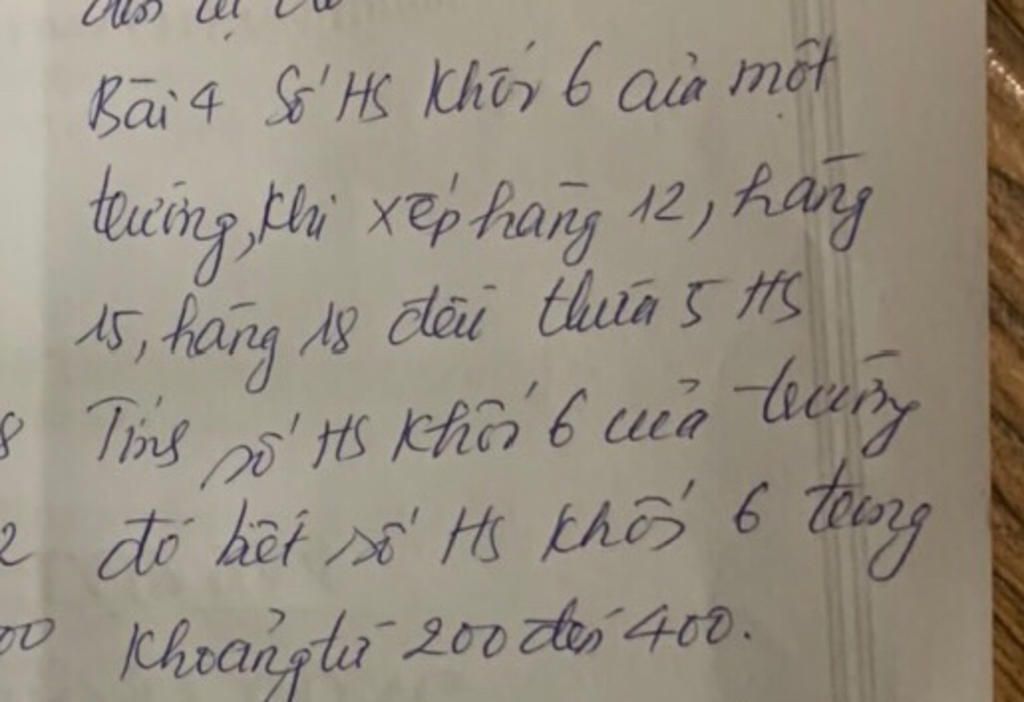 Bài 4 Số HS khối 6 của một
trường, khi xếp hàng 12, hàng
15, hàng 18 đều thừa 5 HS
8 Tính số HS khối 6 của trường
2 đó biết số HS khối 6 trong
00 khoảng từ 200 đến 400.